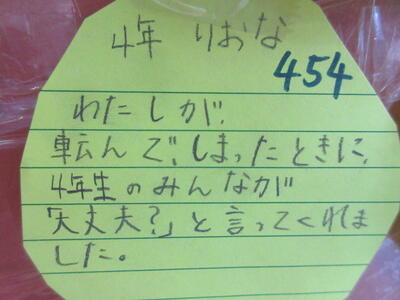 4年 りおな
454
わたしが、
転んで、しまったときに、
4年生のみんなが
「大丈夫？」と言ってくれま
した。